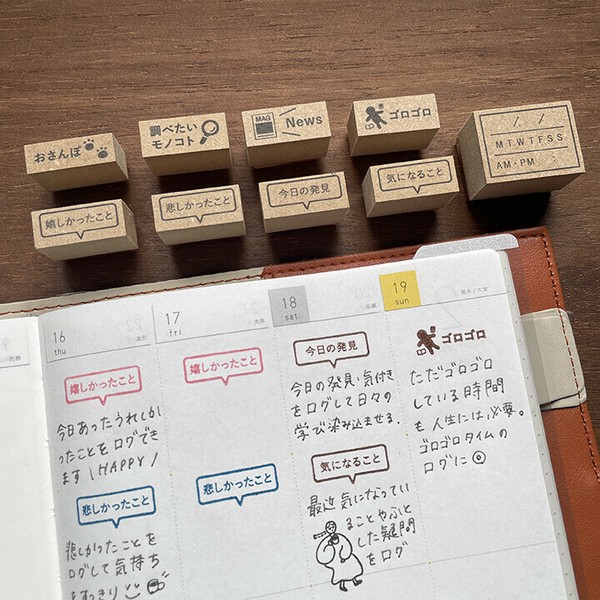 おさんぽ
調べたい
モノコト
MAG
News
ゴロゴロ
M T W T F S S
AM・PM :
嬉しかったこと
悲しかったこと
今日の発見
気になること
16
thu
17
fri
18
sat
19
sun
嬉しかったこと
今日あったうれしか
ったことをログでき
ます \HAPPY/
悲しかったこと
悲しかったことを
ログして気持ち
をすっきり
嬉しかったこと
悲しかったこと
今日の発見
今日の発見・気付き
をログして日々の
学び染み込ませる.
気になること
最近気になってい
ることやふと
した疑問
をログ
ゴロゴロ
ただゴロゴロ
している時間
も人生には必要。
ゴロゴロタイムの
ログに◎